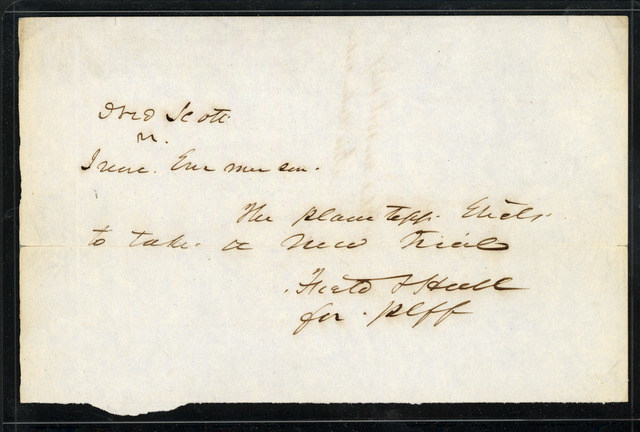 Dred Scott
vs.
Irene Emmerson.
The plaintiff Elects
to take a new trial
Field & Hall
for plff